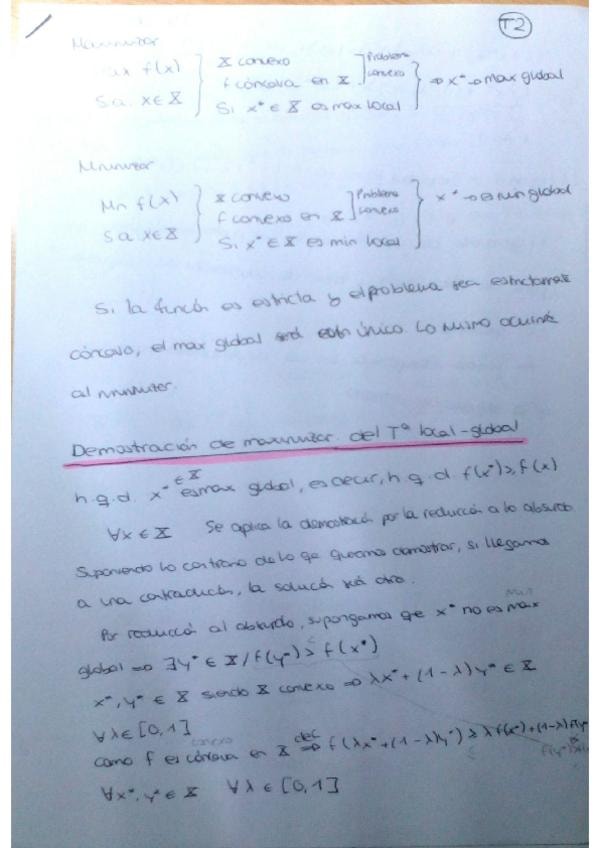 T2
Maximizar
Max f(x) } X convexo ] Problema
s.a. x ∈ X } f cóncava en X ] convexo } ⇒ x* → max global
Si x* ∈ X es max local
Minimizar
Min f(x) } X convexo ] Problema } x* → es min global
s.a. x ∈ X } f convexa en X ] convexo
Si x* ∈ X es min local
Si la función es estricta y el problema sea estrictamente
cóncavo, el max global será único. Lo mismo ocurrirá
al minimizar.
Demostración de maximizar del Tª local-global
h.q.d. x* ∈ X es max global, es decir, h.q.d. f(x*) ≥ f(x)
∀x ∈ X Se aplica la demostración por la reducción a lo absurdo
Suponiendo lo contrario de lo qe queramos demostrar, si llegamos
a una contradicción, la solución será otra.
Min
Por reducción al absurdo, supongamos qe x* no es max
global ⇒ ∃y* ∈ X / f(y*) > f(x*)
x*, y* ∈ X siendo X convexo ⇒ λx* + (1-λ)y* ∈ X
∀λ ∈ [0,1]
convexa
como f es cóncava en X ⇒ def f(λx* + (1-λ)y*) ≥ λf(x*) + (1-λ)f(y*)
∀x*, y* ∈ X ∀λ ∈ [0,1]